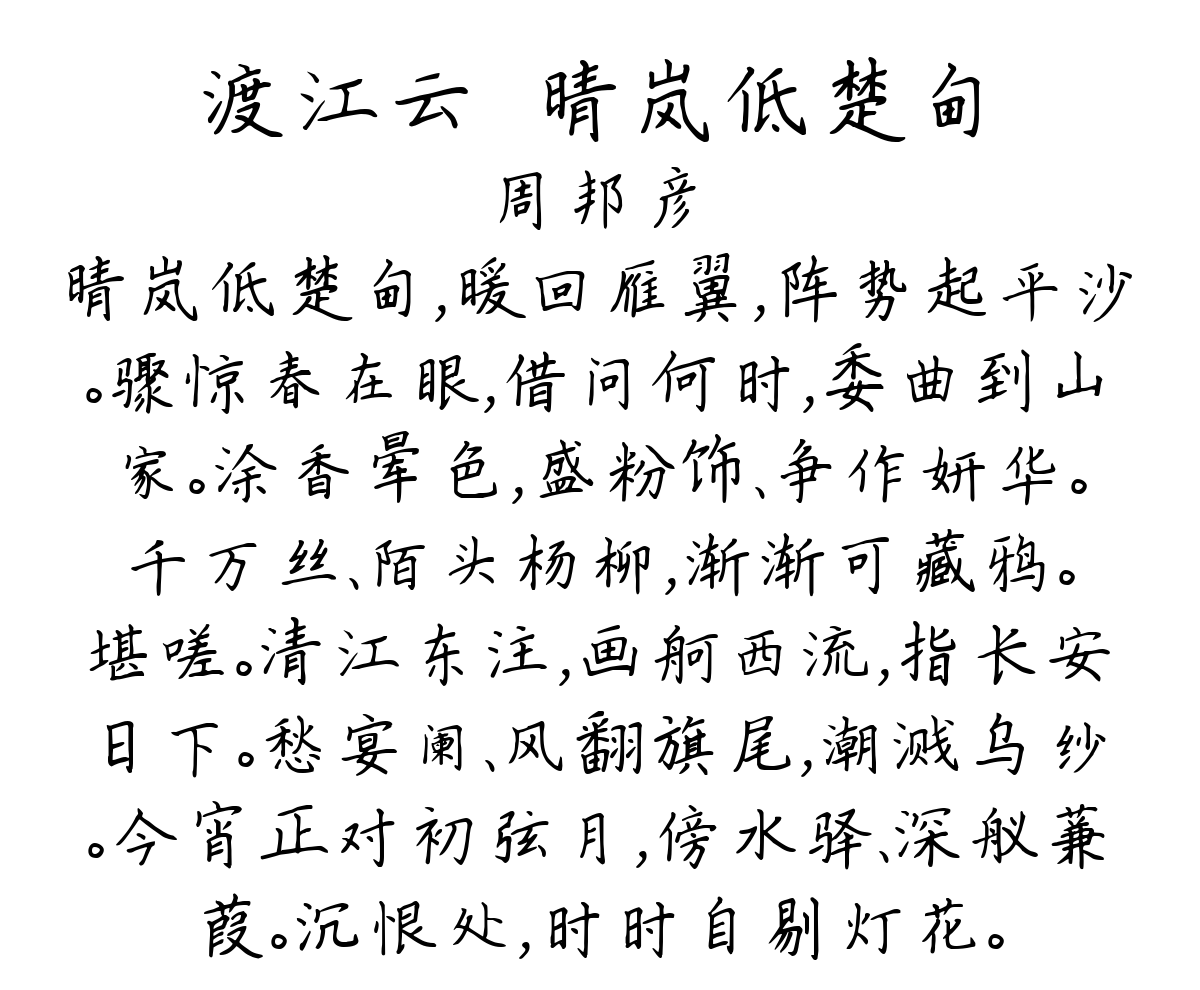 渡江云 晴岚低楚甸
周邦彦
晴岚低楚甸,暖回雁翼,阵势起平沙
。骤惊春在眼,借问何时,委曲到山
家。涂香晕色,盛粉饰、争作妍华。
千万丝、陌头杨柳,渐渐可藏鸦。
堪嗟。清江东注,画舸西流,指长安
日下。愁宴阑、风翻旗尾,潮溅乌纱
。今宵正对初弦月,傍水驿、深舣蒹
葭。沉恨处,时时自剔灯花。